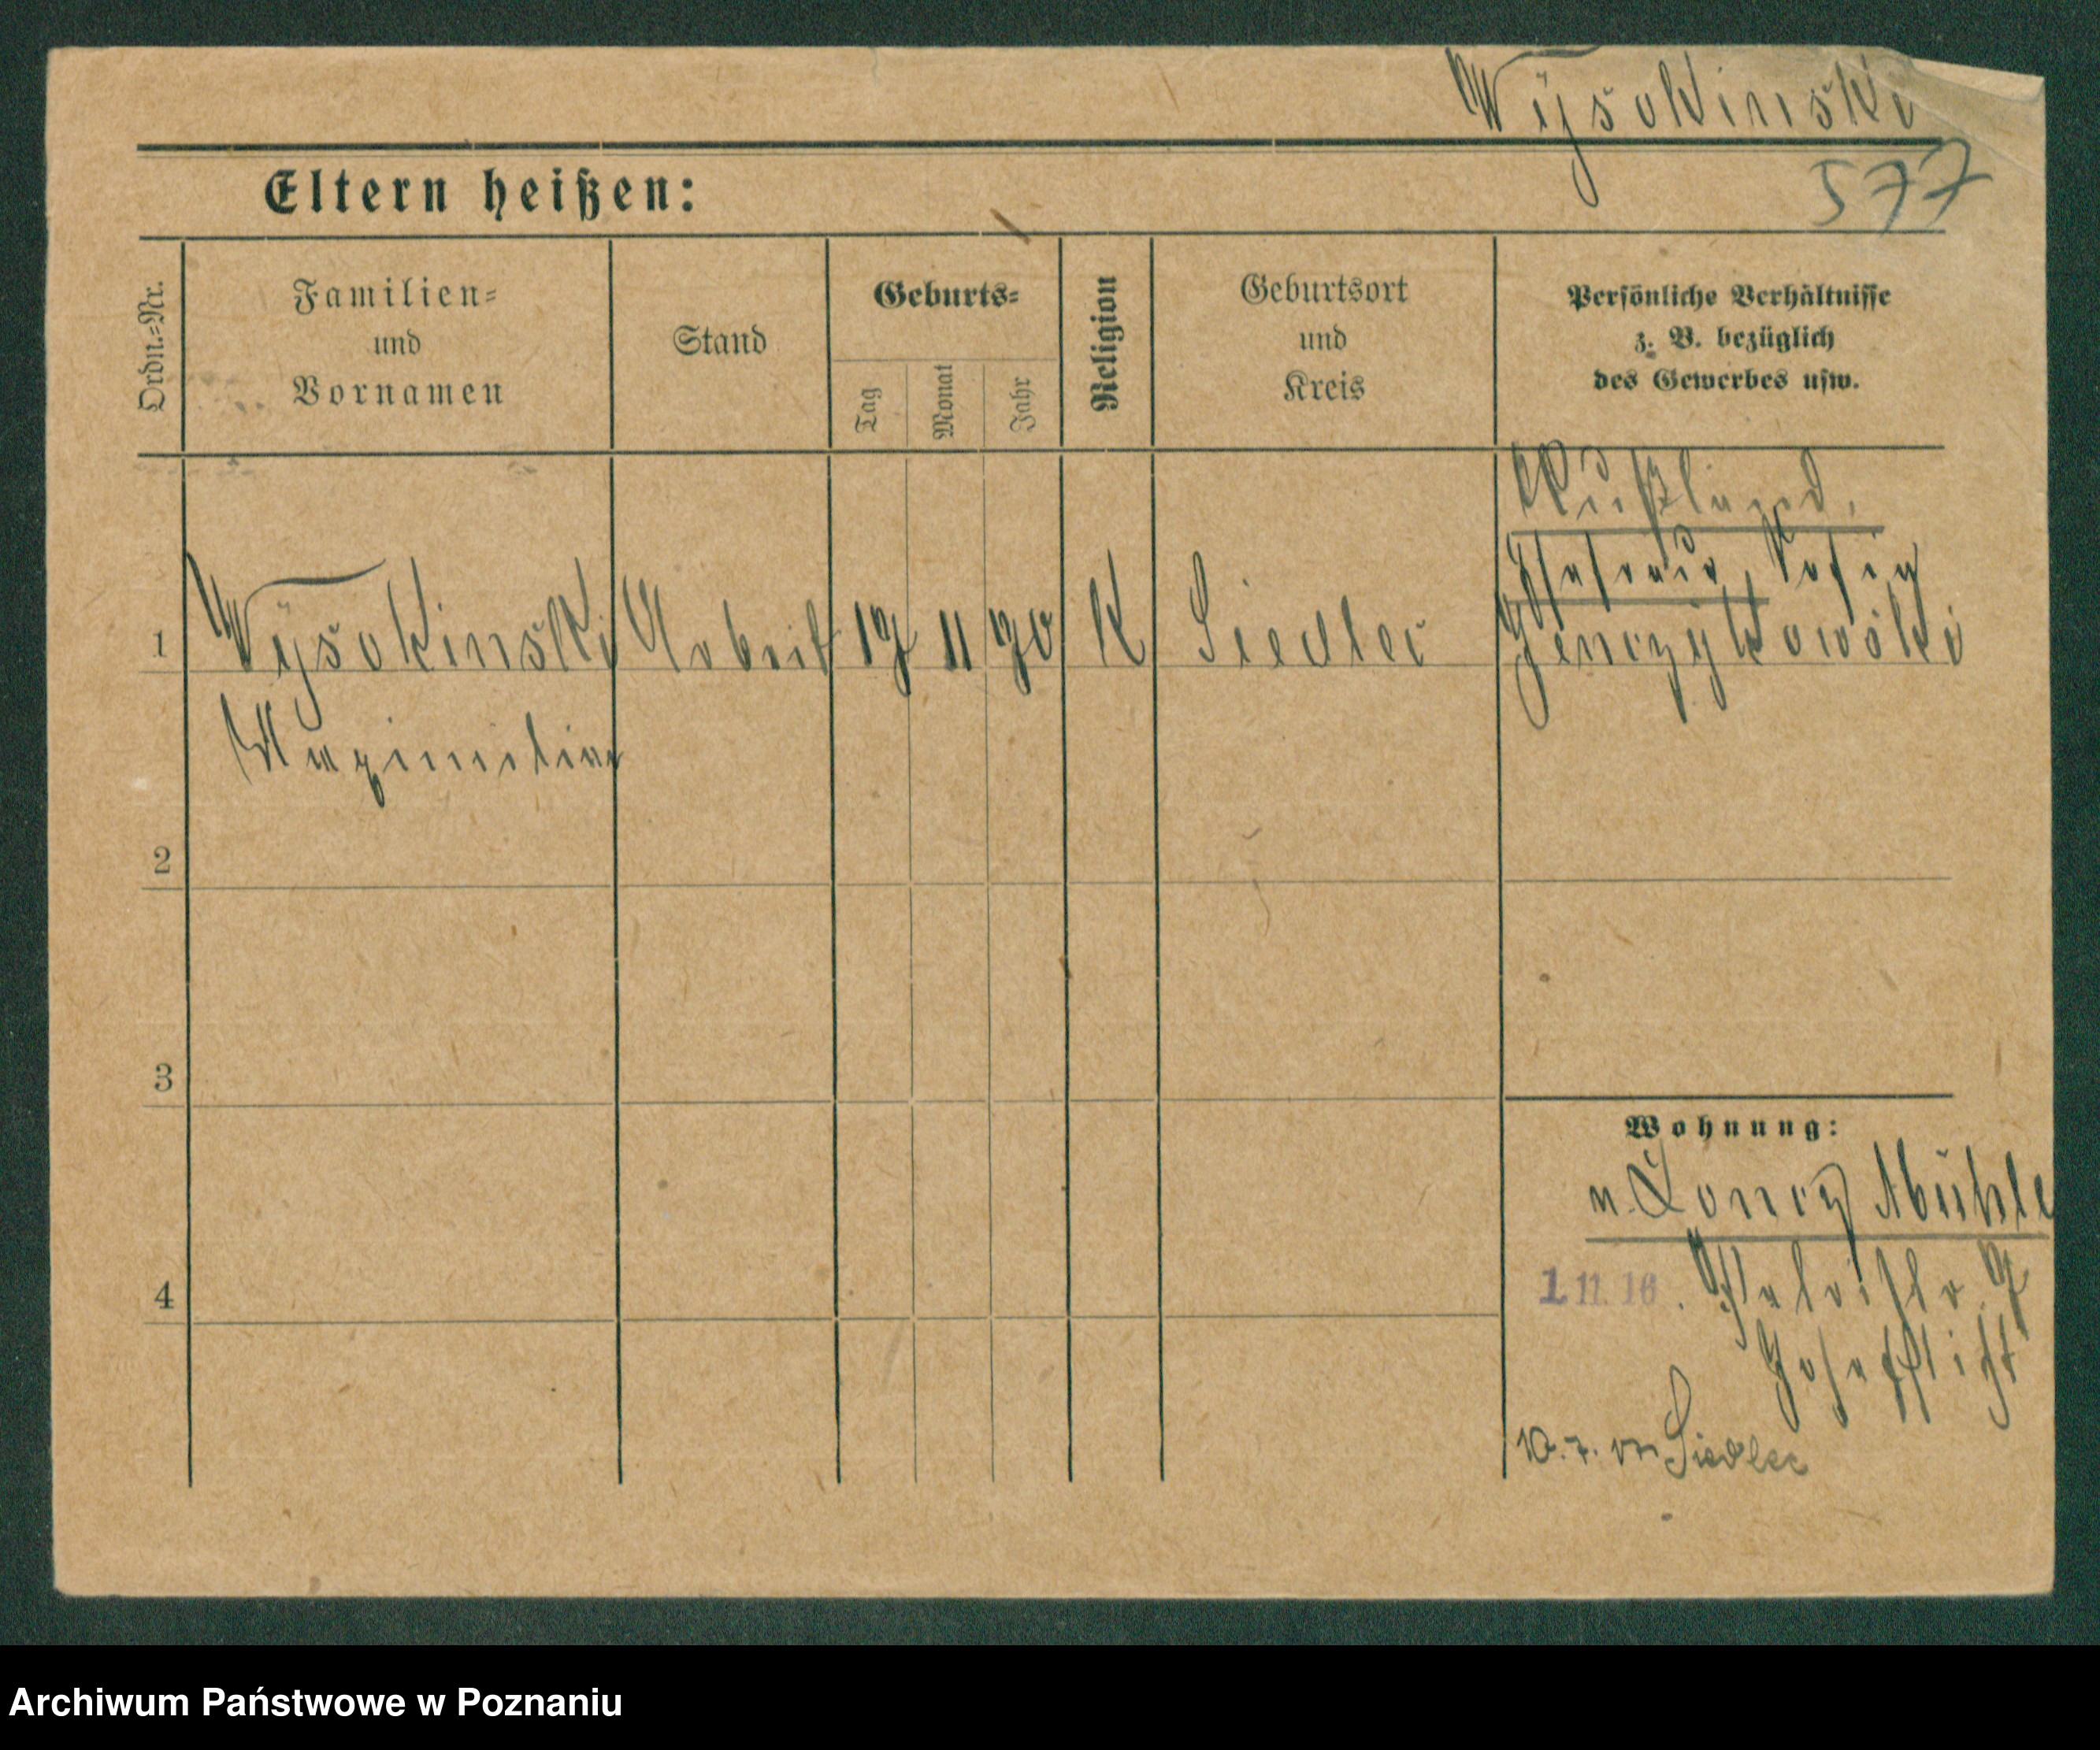 Wysokinski
577
Eltern heißen:
Ordn.=Nr.
Familien=
und
Vornamen
Stand
Geburts=
Tag
Monat
Jahr
Religion
Geburtsort
und
Kreis
Persönliche Verhältnisse
z. B. bezüglich
des Gewerbes usw.
Rußland.
1 Wysokinski Arbeit 17 11 70 K Siedlec Jenczykowski
Maximilian
2
3
Wohnung:
n. Loncz Mühle
4 1 11. 16.
10. 7. vn Siedlec
Archiwum Państwowe w Poznaniu